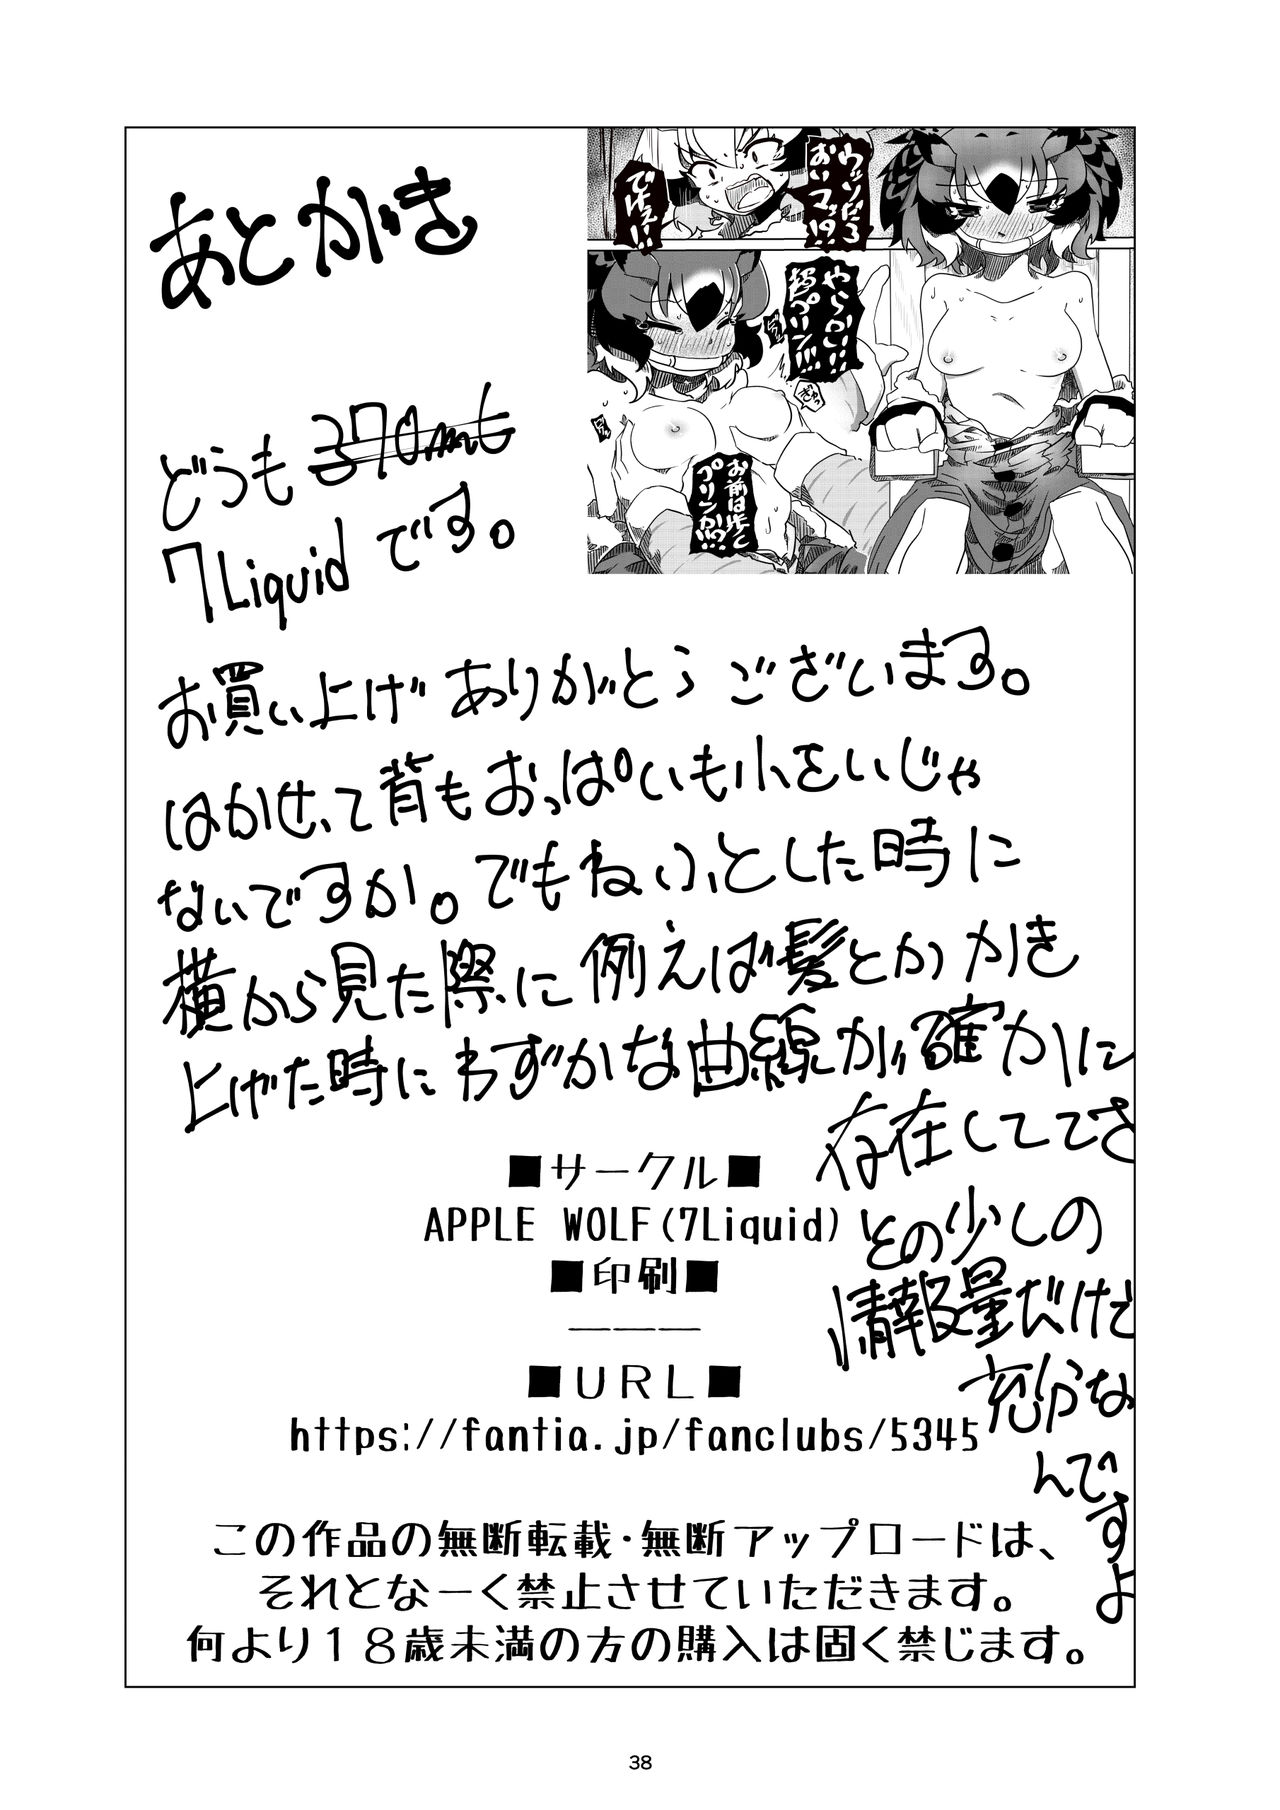 あとがき
どうも 370ml
7Liquid です。
ウッソだろ
おいマッサ
でけェ!!
やらかい!!
超プリン!!!
お前は歩く
プリンか!?
お買い上げ ありがとう ございます。
はかせって背もおっぱいも小さいじゃ
ないですか。でもねふとした時に
横から見た際に例えば髪とか かき
上げた時にわずかな曲線が確かに
存在しててさ
その少しの
情報量だけで
充分な
んです
よ
■サークル■
APPLE WOLF(7Liquid)
■印刷■
———
■URL■
https://fantia.jp/fanclubs/5345
この作品の無断転載・無断アップロードは、
それとなーく禁止させていただきます。
何より18歳未満の方の購入は固く禁じます。
38